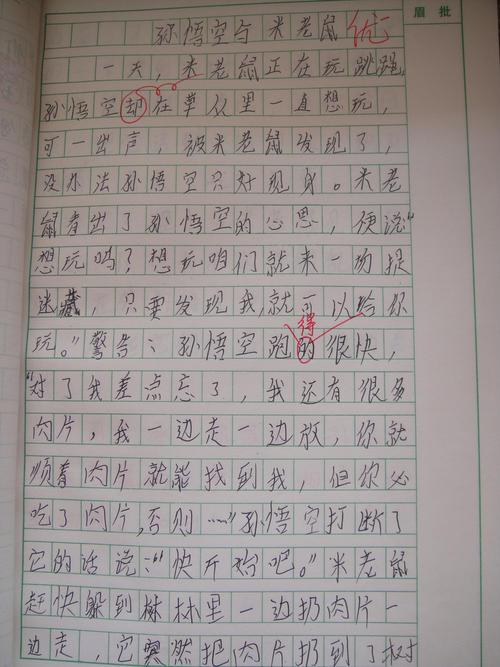 眉批
孙悟空与米老鼠 优
一天，米老鼠正在玩跳跳，
孙悟空却在草丛里一直想玩，
可一出声，被米老鼠发现了，
没办法孙悟空只好现身。米老
鼠看出了孙悟空的心思，便说“
想玩吗？想玩咱们就来一场捉
迷藏，只要发现我，就可以给你
得
玩。”警告：孙悟空跑的很快，
“对了我差点忘了，我还有很多
肉片，我一边走一边放，你就
顺着肉片就能找到我，但你必
吃了肉片，否则……”孙悟空打断了
它的话说：“快开始吧。”米老鼠
赶快躲到树林里一边扔肉片一
边走，它突然把肉片扔到了树